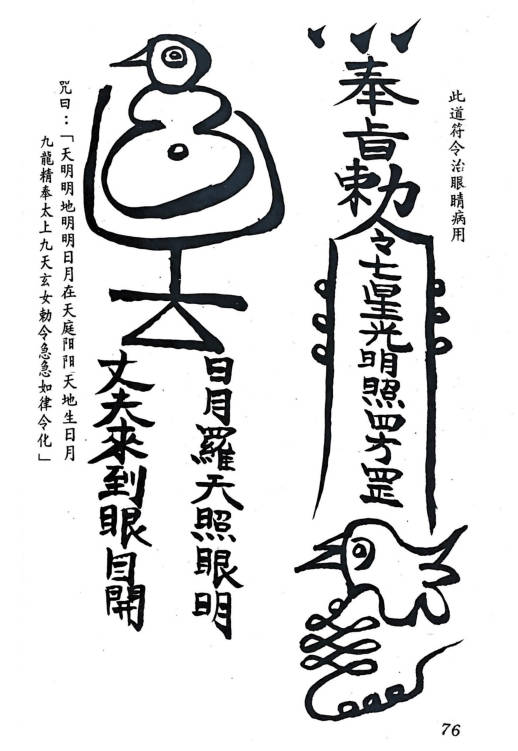 此道符令治眼睛病用
奉旨勅令七星光明照四方罡
日月羅天照眼明
丈夫來到眼目開
咒曰：「天明明地明明日月在天庭阳阳天地生日月
九龍精奉太上九天玄女勅令急急如律令化」
76